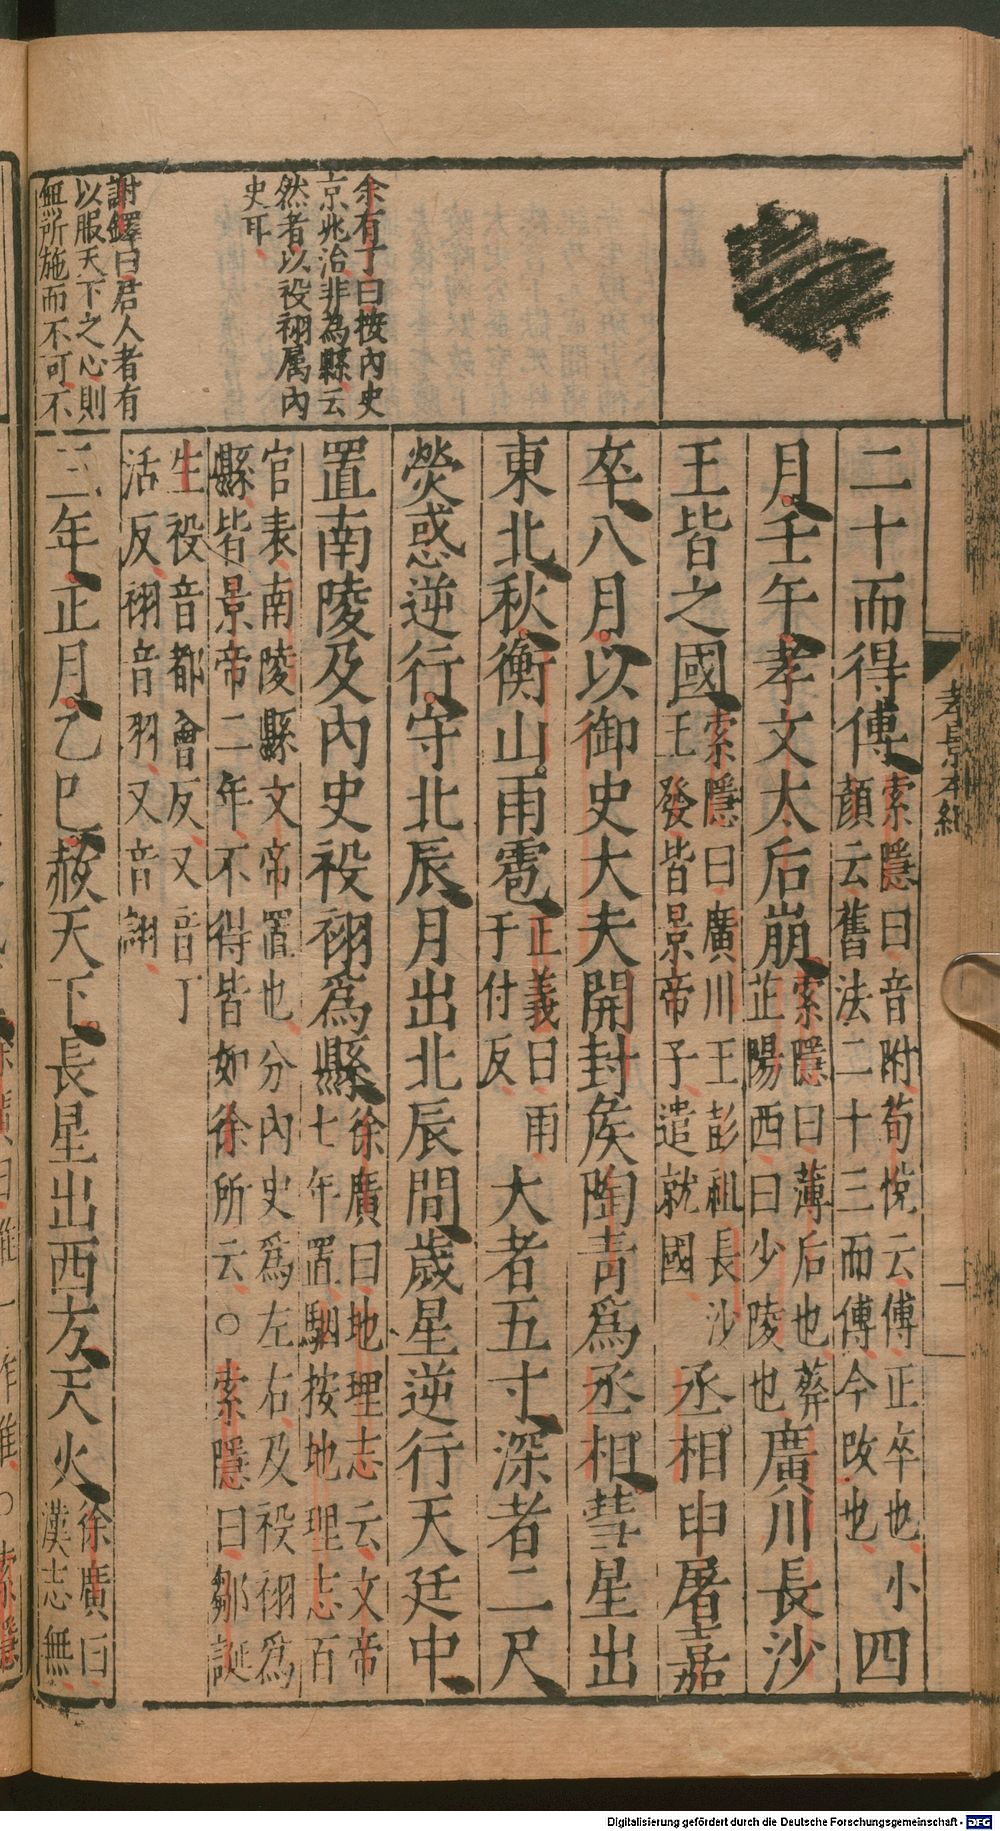 余有丁曰按內史
京兆治非為縣云
然者以祋祤属內
史耳
謝鐸曰君人者有
以服天下之心則
無所施而不可不
孝景本紀
二十而得傅索隱曰音附荀悅云傅正卒也小
顏云舊法二十三而傅今改也四
月壬午孝文太后崩索隱曰薄后也葬
芷陽西曰少陵也廣川長沙
王皆之國索隱曰廣川王彭祖長沙
王發皆景帝子遣就國丞相申屠嘉
卒八月以御史大夫開封侯陶青爲丞相彗星出
東北秋衡山雨雹正義曰雨
于付反大者五寸深者二尺
熒惑逆行守北辰月出北辰間歲星逆行天廷中
置南陵及內史祋祤爲縣徐廣曰地理志云文帝
七年置駰按地理志百
官表南陵縣文帝置也分內史爲左右及祋祤爲
縣皆景帝二年不得皆如徐所云○索隱曰鄒誕
生祋音都會反又音丁
活反祤音羽又音詡
三年正月乙巳赦天下長星出西方天火徐廣曰
漢志無
Digitalisierung gefördert durch die Deutsche Forschungsgemeinschaft - DFG